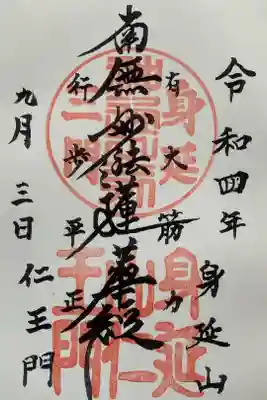 令和四年
身延山
有大筋力
南無妙法蓮華経
行歩平正
九月三日
仁王門
身延
二門
身延山
仁王門